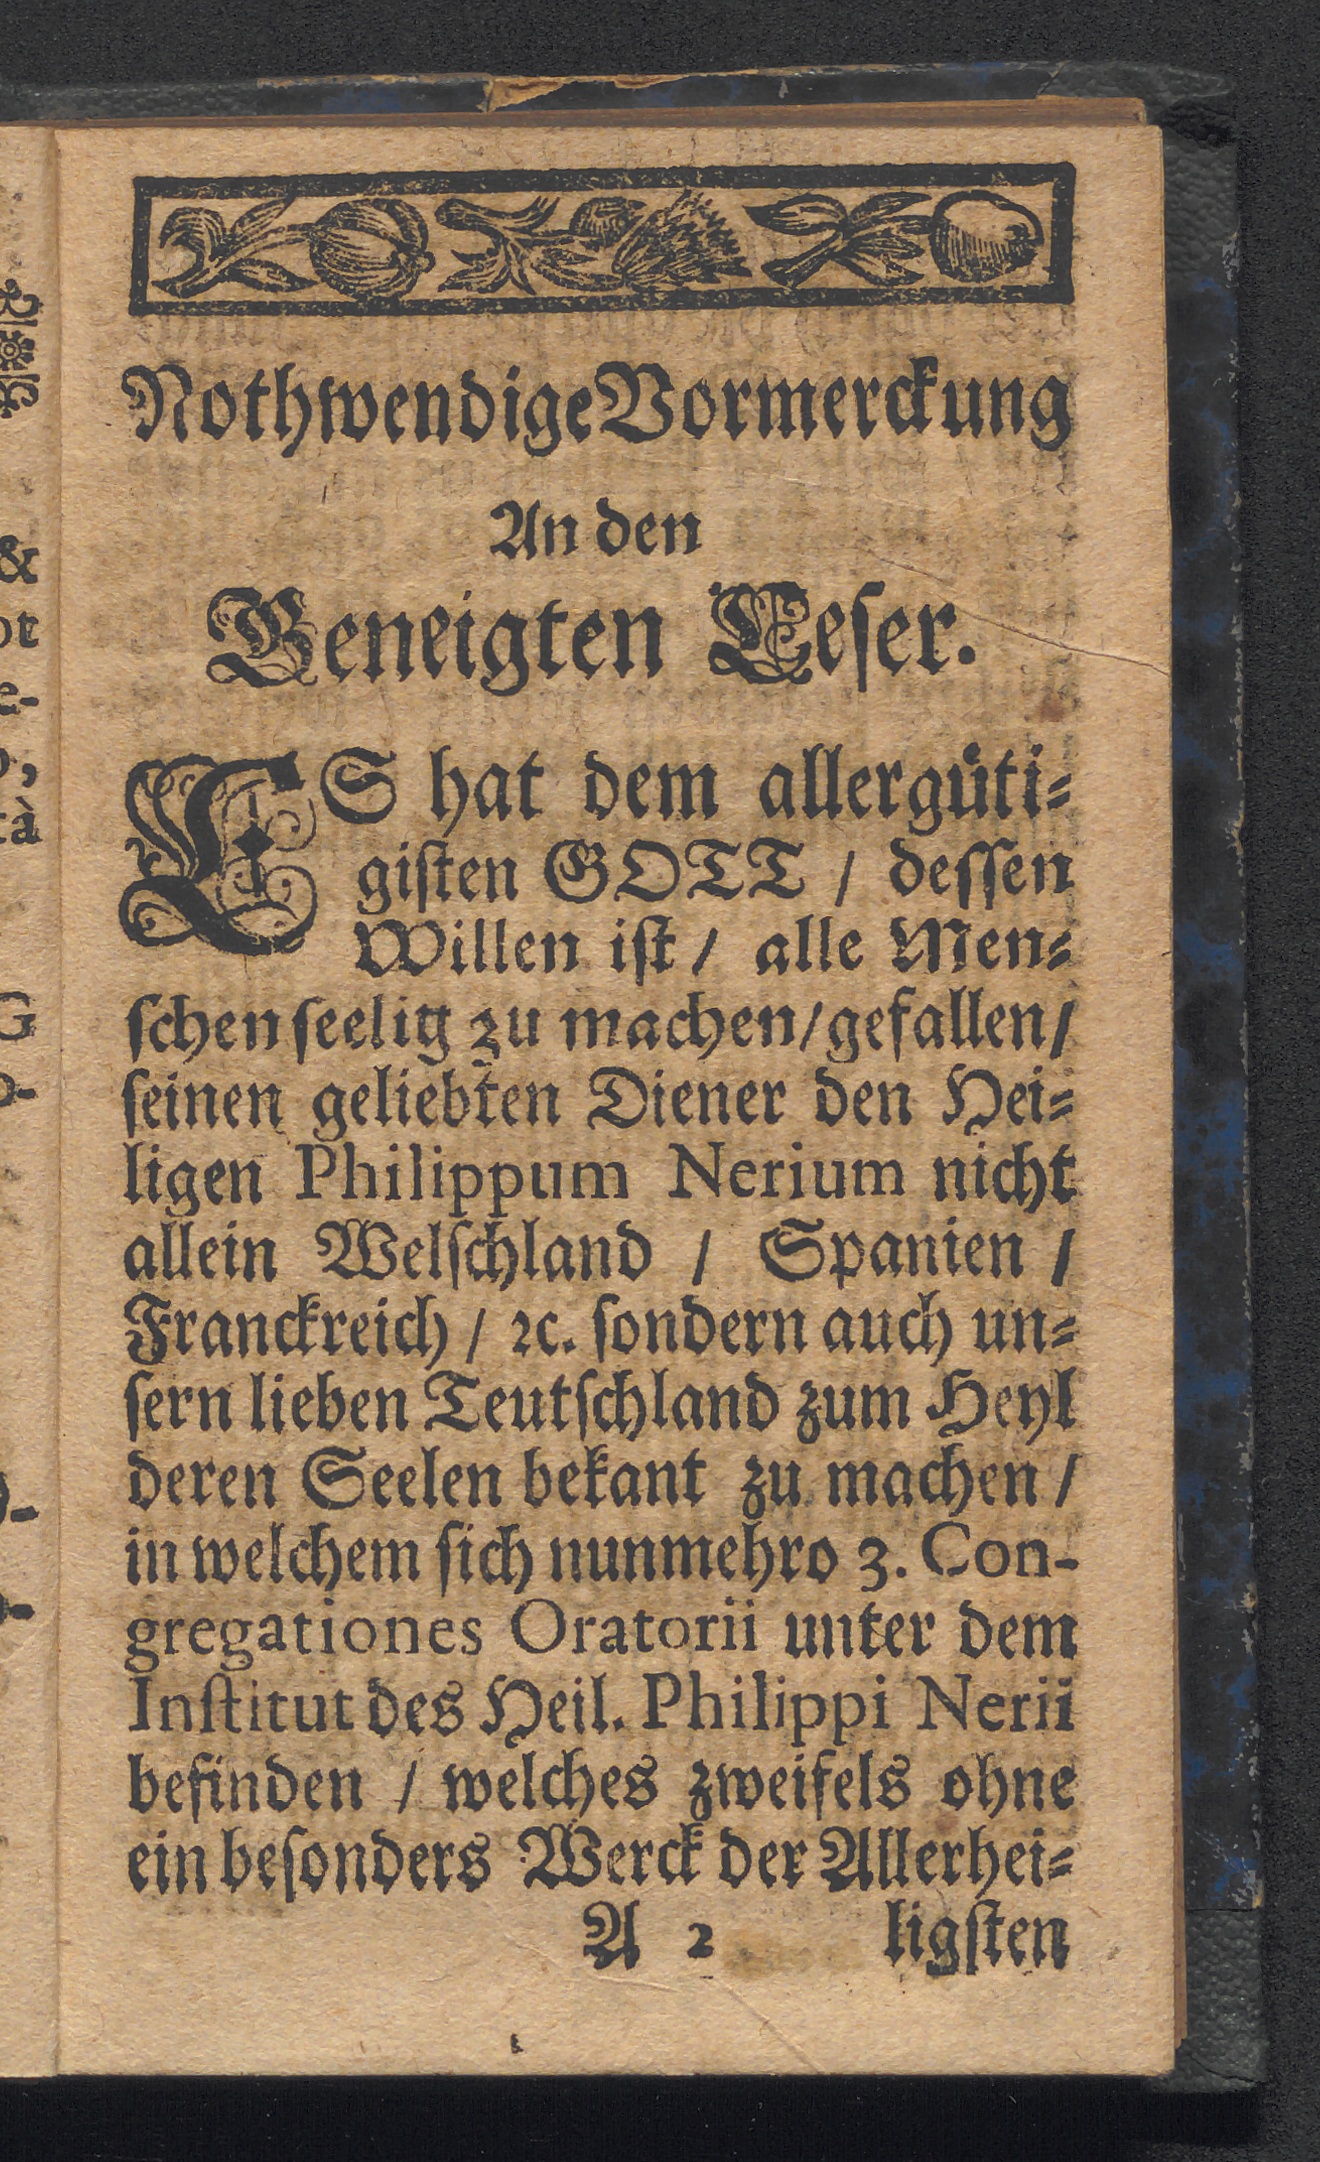 Nothwendige Vormerckung
An den
Geneigten Leser.
ES hat dem allergüti⸗
gisten GOTT / dessen
Willen ist / alle Men⸗
schen seelig zu machen / gefallen /
seinen geliebten Diener den Hei⸗
ligen Philippum Nerium nicht
allein Welschland / Spanien /
Franckreich / ꝛc. sondern auch un⸗
sern lieben Teutschland zum Heyl
deren Seelen bekant zu machen /
in welchem sich nunmehro 3. Con-
gregationes Oratorii unter dem
Institut des Heil. Philippi Nerii
befinden / welches zweifels ohne
ein besonders Werck der Allerhei⸗
A 2 ligsten